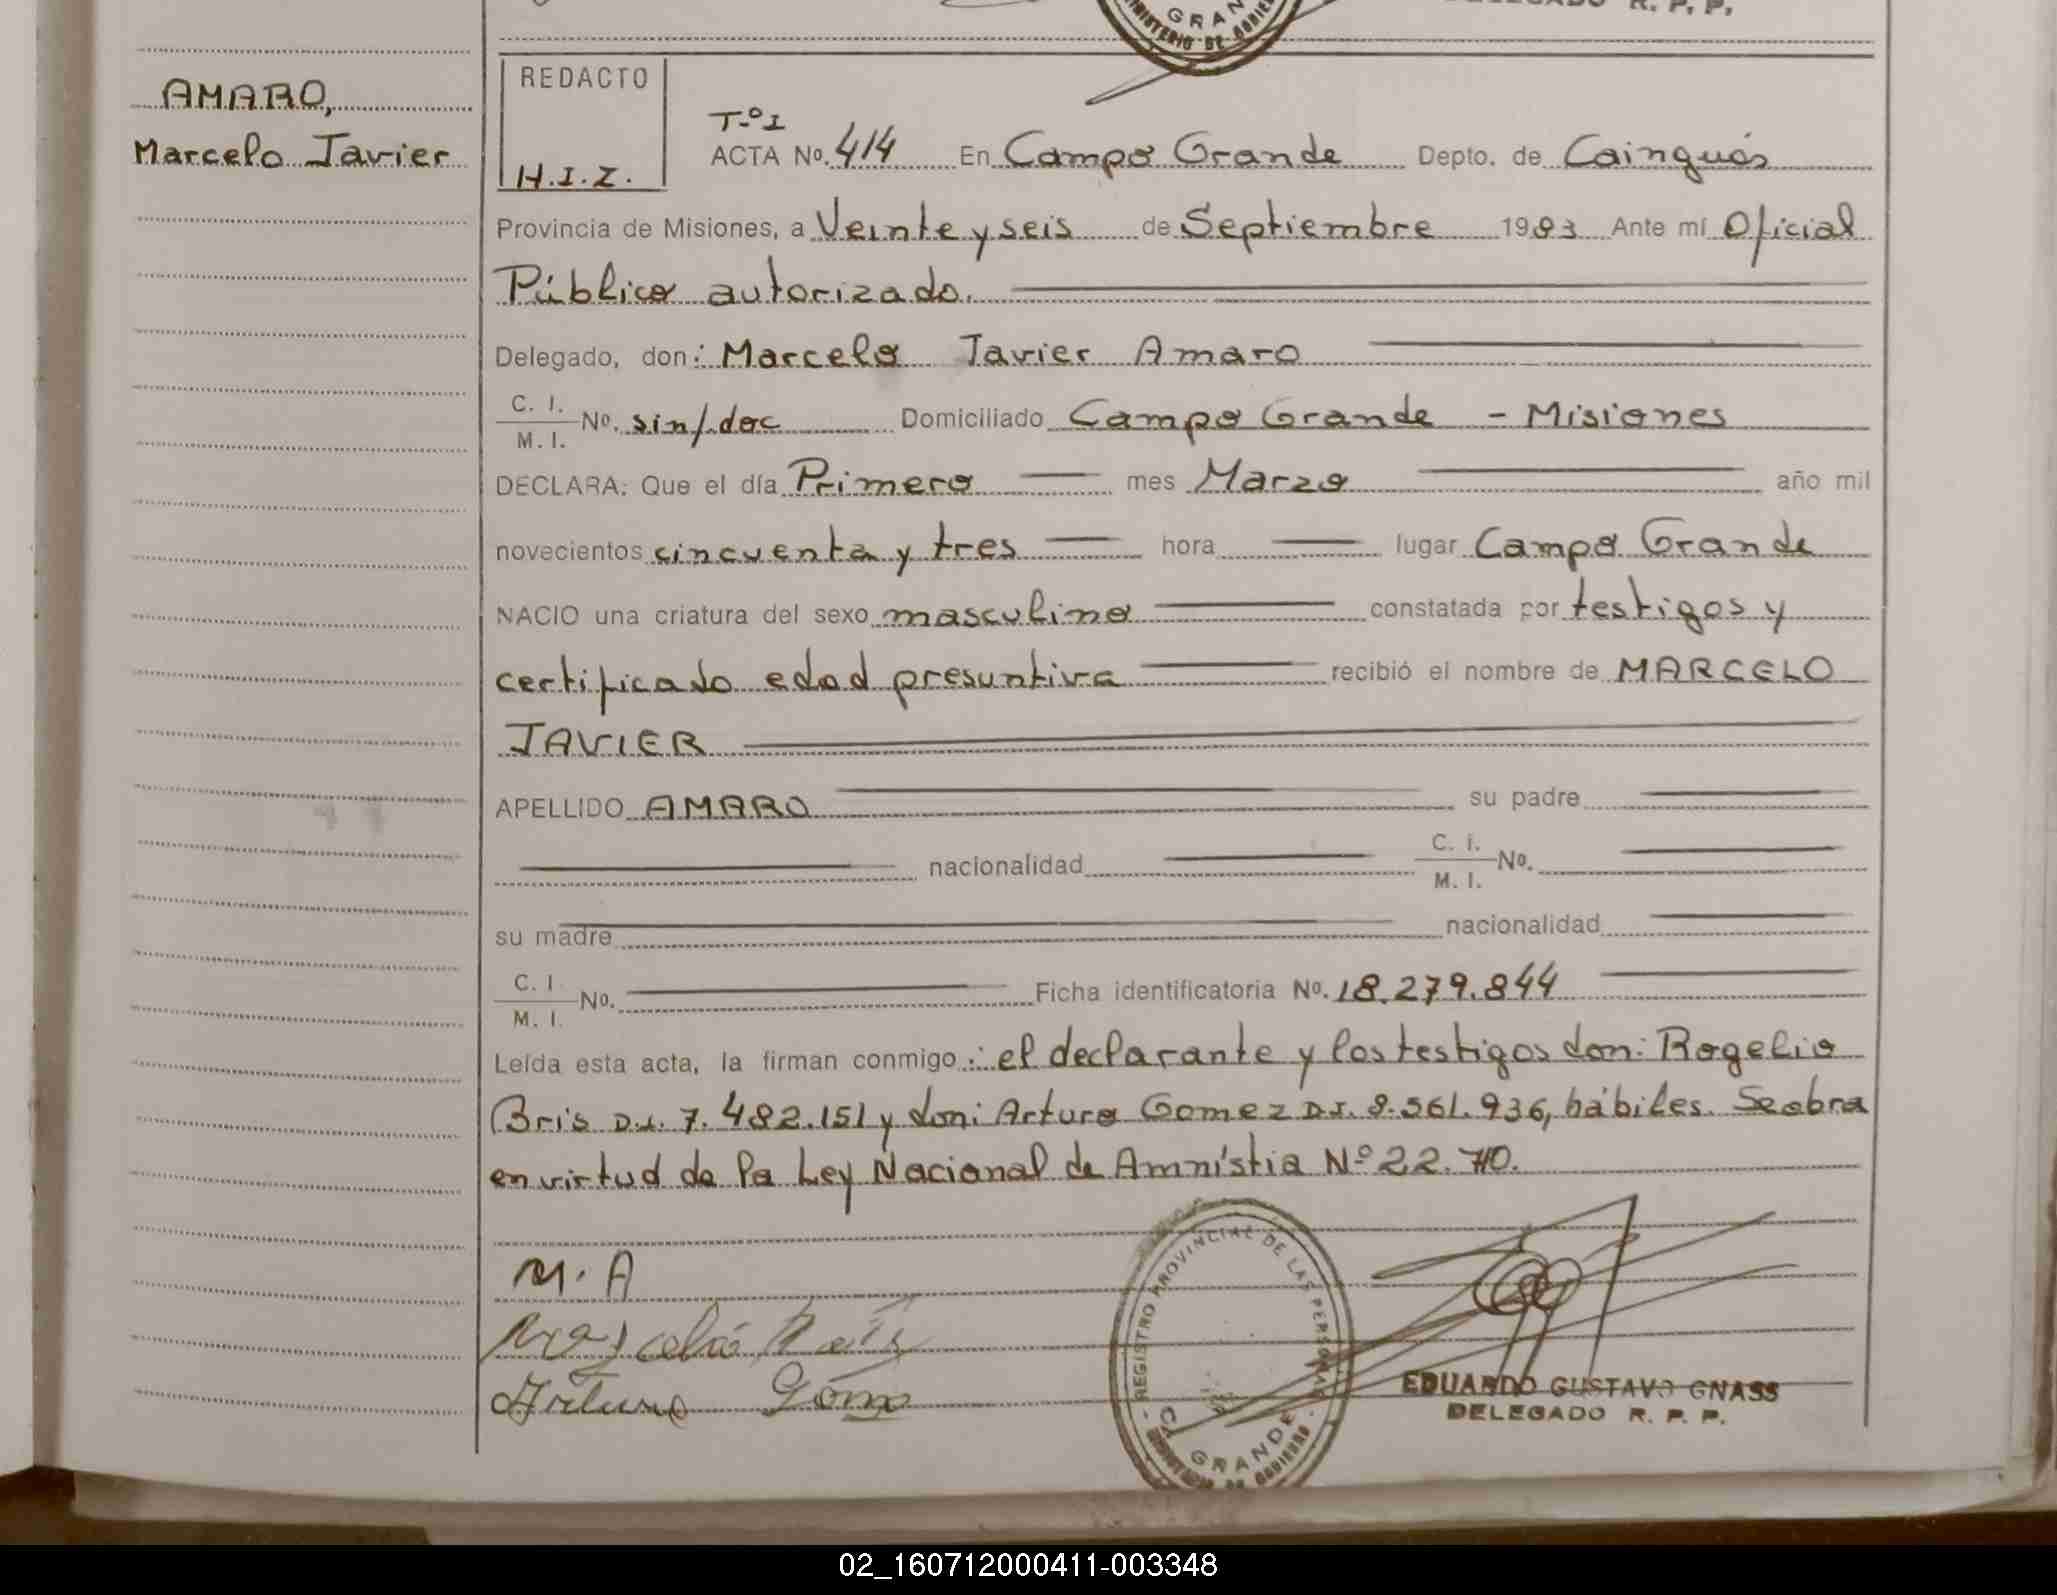 GRAN
MINISTERIO DE GOBIER
DELEGADO R. P. P.
AMARO,
Marcelo Javier
REDACTO
H.I.Z.
T-º I
ACTA No. 414 En Campo Grande Depto. de Cainguás
Provincia de Misiones, a Veinte y seis de Septiembre 1983 Ante mí Oficial
Público autorizado.
Delegado, don: Marcelo Javier Amaro
C. I.
M. I. No. sin/.doc Domiciliado Campo Grande - Misiones
DECLARA: Que el día Primero mes Marzo año mil
novecientos cincuenta y tres hora lugar Campo Grande
NACIO una criatura del sexo masculino constatada por testigos y
certificado edad presuntiva recibió el nombre de MARCELO
JAVIER
APELLIDO AMARO su padre
nacionalidad C. I.
M. I. No.
su madre nacionalidad
C. I.
M. I. No. Ficha identificatoria No. 18.279.844
Leída esta acta, la firman conmigo: el declarante y los testigos don: Rogelio
Bris D.I. 7.482.151 y don: Arturo Gomez D.I. 8.561.936, hábiles. Se obra
en virtud de la Ley Nacional de Amnistia Nº 22.710.
M. A
Arturo Gomz
REGISTRO PROVINCIAL DE LAS PERSONAS
GRANDE
MINISTERIO DE GOBIERNO
EDUARDO GUSTAVO GNASS
DELEGADO R. P. P.
02_160712000411-003348